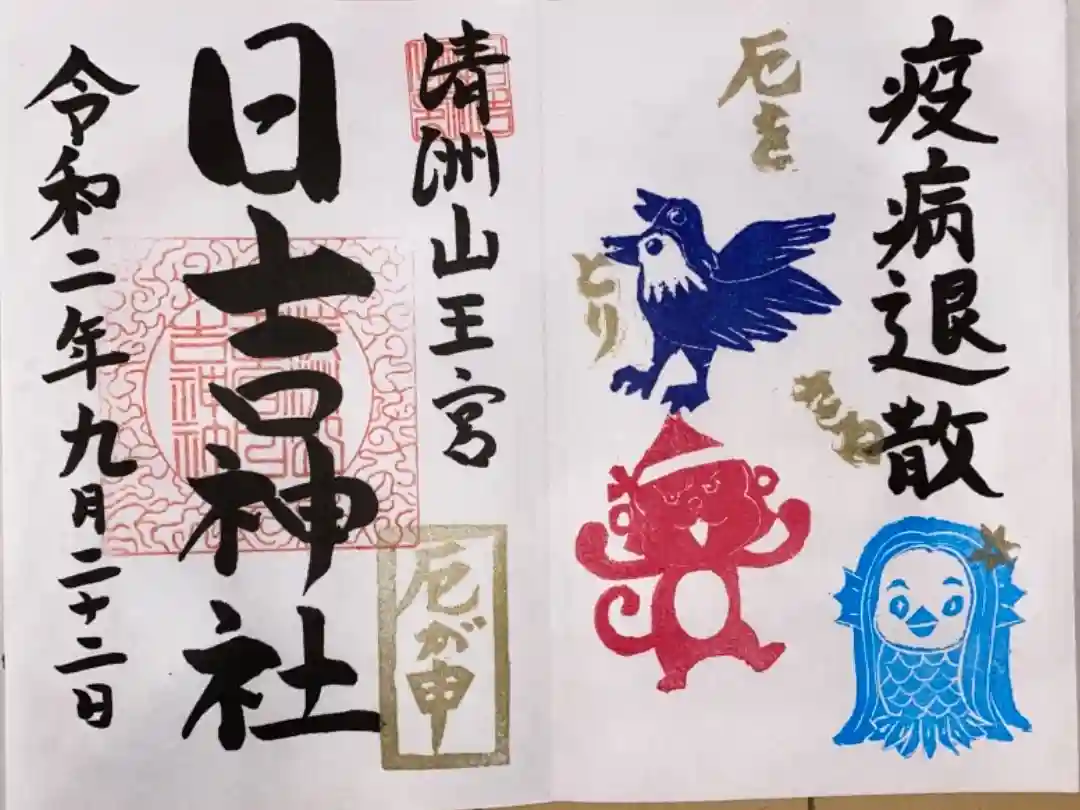 疫病退散
厄を
とり
清洲山王宮
日吉神社
厄が申
令和二年九月二十二日